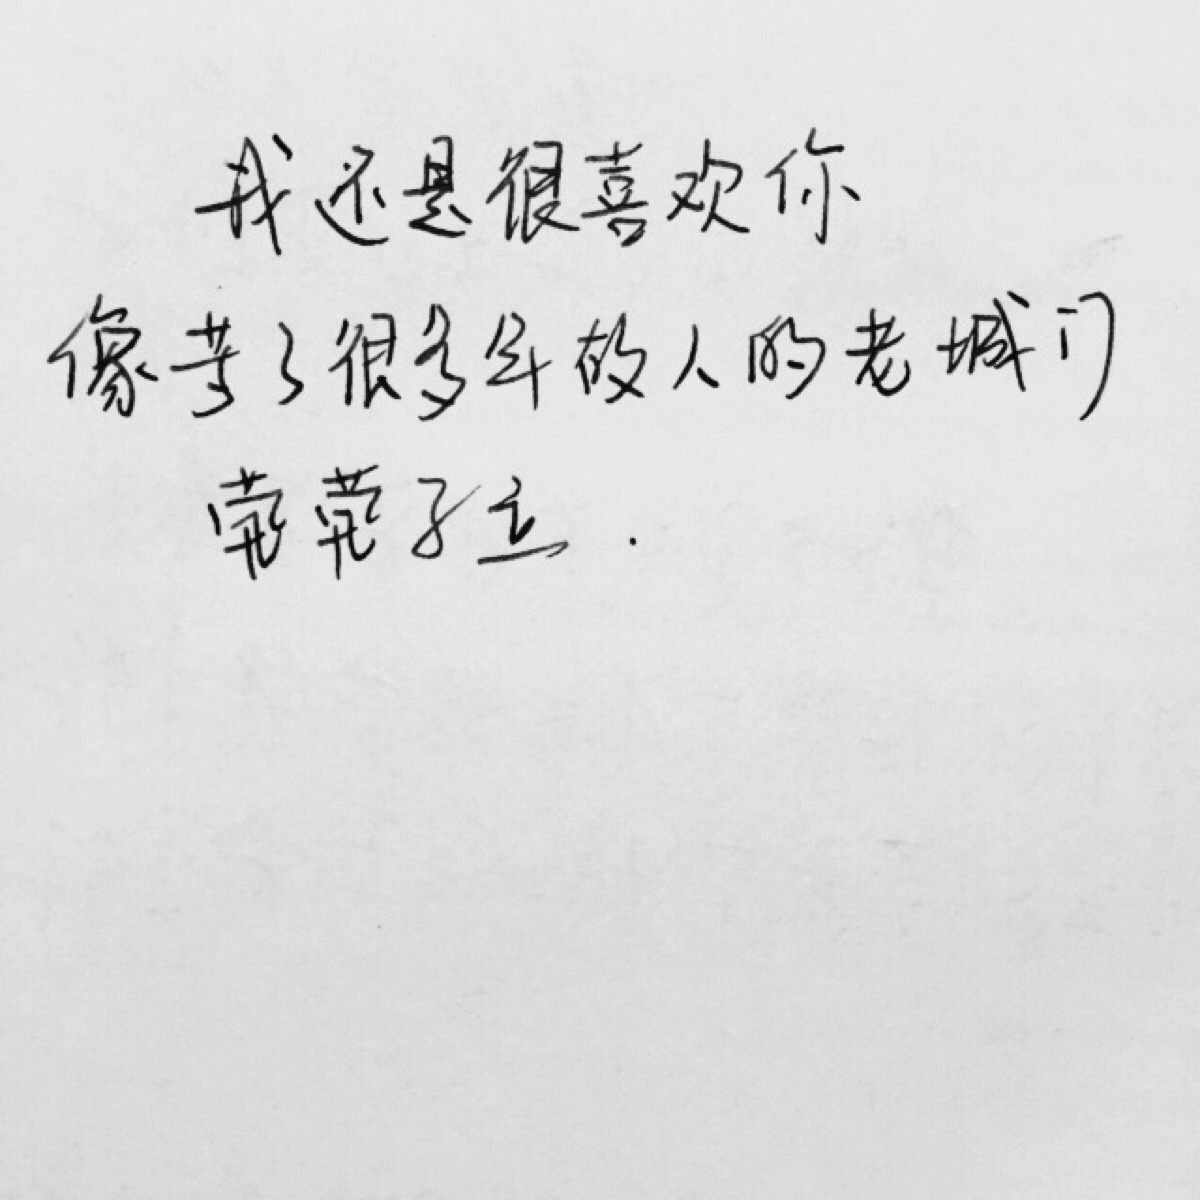 我还是很喜欢你
像等了很多年故人的老城门
茕茕孑立.